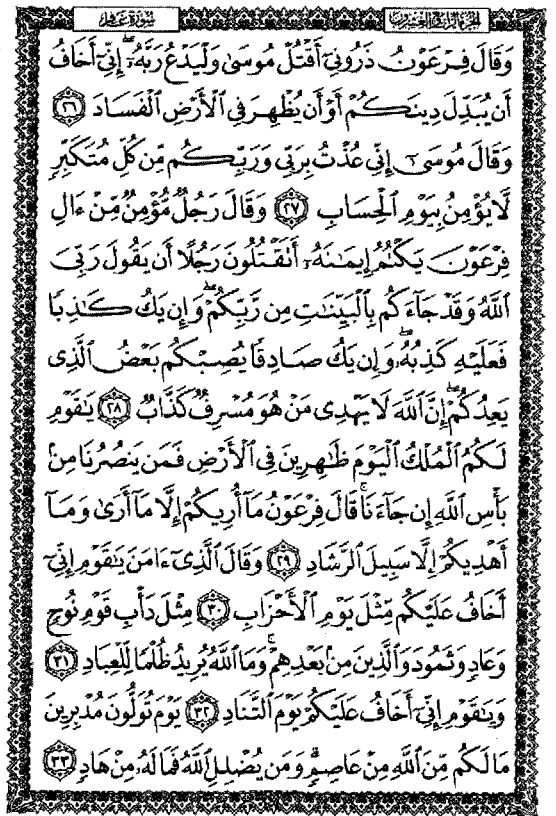 سُورَةُ غَافِر الجُزءُ الرَّابِعُ وَالعِشرُون
وَقَالَ فِرْعَوْنُ ذَرُونِىٓ أَقْتُلْ مُوسَىٰ وَلْيَدْعُ رَبَّهُۥٓۖ إِنِّىٓ أَخَافُ
أَن يُبَدِّلَ دِينَكُمْ أَوْ أَن يُظْهِرَ فِى ٱلْأَرْضِ ٱلْفَسَادَ ٢٦
وَقَالَ مُوسَىٰٓ إِنِّى عُذْتُ بِرَبِّى وَرَبِّكُم مِّن كُلِّ مُتَكَبِّرٍ
لَّا يُؤْمِنُ بِيَوْمِ ٱلْحِسَابِ ٢٧ وَقَالَ رَجُلٌ مُّؤْمِنٌ مِّنْ ءَالِ
فِرْعَوْنَ يَكْتُمُ إِيمَٰنَهُۥٓ أَتَقْتُلُونَ رَجُلًا أَن يَقُولَ رَبِّىَ
ٱللَّهُ وَقَدْ جَآءَكُم بِٱلْبَيِّنَٰتِ مِن رَّبِّكُمْۖ وَإِن يَكُ كَٰذِبًا
فَعَلَيْهِ كَذِبُهُۥۖ وَإِن يَكُ صَادِقًا يُصِبْكُم بَعْضُ ٱلَّذِى
يَعِدُكُمْۖ إِنَّ ٱللَّهَ لَا يَهْدِى مَنْ هُوَ مُسْرِفٌ كَذَّابٌ ٢٨ يَٰقَوْمِ
لَكُمُ ٱلْمُلْكُ ٱلْيَوْمَ ظَٰهِرِينَ فِى ٱلْأَرْضِ فَمَن يَنصُرُنَا مِنۢ
بَأْسِ ٱللَّهِ إِن جَآءَنَاۚ قَالَ فِرْعَوْنُ مَآ أُرِيكُمْ إِلَّا مَآ أَرَىٰ وَمَآ
أَهْدِيكُمْ إِلَّا سَبِيلَ ٱلرَّشَادِ ٢٩ وَقَالَ ٱلَّذِىٓ ءَامَنَ يَٰقَوْمِ إِنِّىٓ
أَخَافُ عَلَيْكُم مِّثْلَ يَوْمِ ٱلْأَحْزَابِ ٣٠ مِثْلَ دَأْبِ قَوْمِ نُوحٍ
وَعَادٍ وَثَمُودَ وَٱلَّذِينَ مِنۢ بَعْدِهِمْۚ وَمَا ٱللَّهُ يُرِيدُ ظُلْمًا لِّلْعِبَادِ ٣١
وَيَٰقَوْمِ إِنِّىٓ أَخَافُ عَلَيْكُمْ يَوْمَ ٱلتَّنَادِ ٣٢ يَوْمَ تُوَلُّونَ مُدْبِرِينَ
مَا لَكُم مِّنَ ٱللَّهِ مِنْ عَاصِمٍۗ وَمَن يُضْلِلِ ٱللَّهُ فَمَا لَهُۥ مِنْ هَادٍ ٣٣